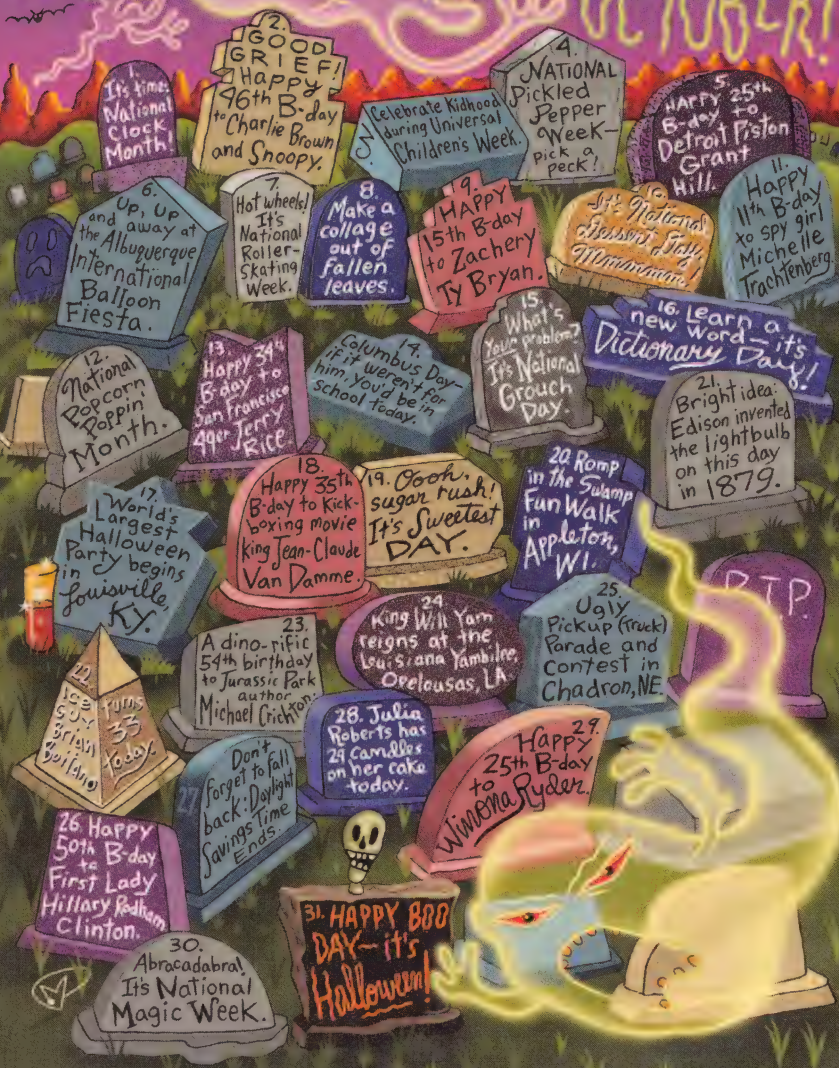 OCTOBER!
1.
It's time:
National
Clock
Month!
2.
GOOD
GRIEF!
Happy
46th B-day
to Charlie Brown
and Snoopy.
3.
Celebrate Kidhood
during Universal
Children's Week.
4.
NATIONAL
Pickled
Pepper
Week—
pick a
peck!
5.
HAPPY 25th
B-day to
Detroit Piston
Grant
Hill.
6.
Up, up
and away at
the Albuquerque
International
Balloon
Fiesta.
7.
Hot wheels!
It's
National
Roller-
Skating
Week.
8.
Make a
collage
out of
fallen
leaves.
9.
HAPPY
15th B-day
to Zachery
Ty Bryan.
10.
It's National
Dessert Day.
Mmmmmm!
11.
Happy
11th B-day
to spy girl
Michelle
Trachtenberg.
12.
National
Popcorn
Poppin
Month.
13.
Happy 34th
B-day to
San Francisco
49er Jerry
Rice
14.
Columbus Day—
if it weren't for
him, you'd be in
school today.
15.
What's
Your problem?
It's National
Grouch
Day.
16. Learn a
new word—it's
Dictionary Day!
17.
World's
Largest
Halloween
Party begins
in
Louisville,
KY.
18.
Happy 35th
B-day to Kick-
boxing movie
King Jean-Claude
Van Damme.
19. Oooh,
sugar rush!
It's Sweetest
DAY.
20. Romp
in the Swamp
Fun Walk
in
Appleton,
WI.
21.
Bright idea:
Edison invented
the lightbulb
on this day
in 1879.
22.
Ice
Guy
Brian
Boitano
turns
33
today.
23.
A dino-rific
54th birthday
to Jurassic Park
author
Michael Crichton.
24
King Will Yam
reigns at the
Louisiana Yambilee,
Opelousas, LA
25.
Ugly
Pickup (truck)
Parade and
Contest in
Chadron, NE.
R.I.P.
26. Happy
50th B-day
to
First Lady
Hillary Rodham
Clinton.
27
Don't
forget to fall
back: Daylight
Savings Time
Ends.
28. Julia
Roberts has
29 candles
on her cake
today.
29.
Happy
25th B-day
to
Winona Ryder.
30.
Abracadabra!
It's National
Magic Week.
31. HAPPY BOO
DAY—it's
Halloween!